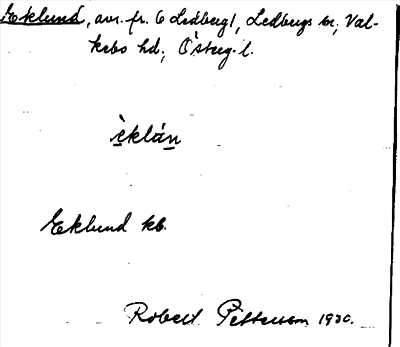 Eklund, avs. fr. 6 Ledberg 1, Ledbergs sn, Val-
kebo hd, Österg. l.
èklán
Eklund kb.
Robert Pettersson 1930.